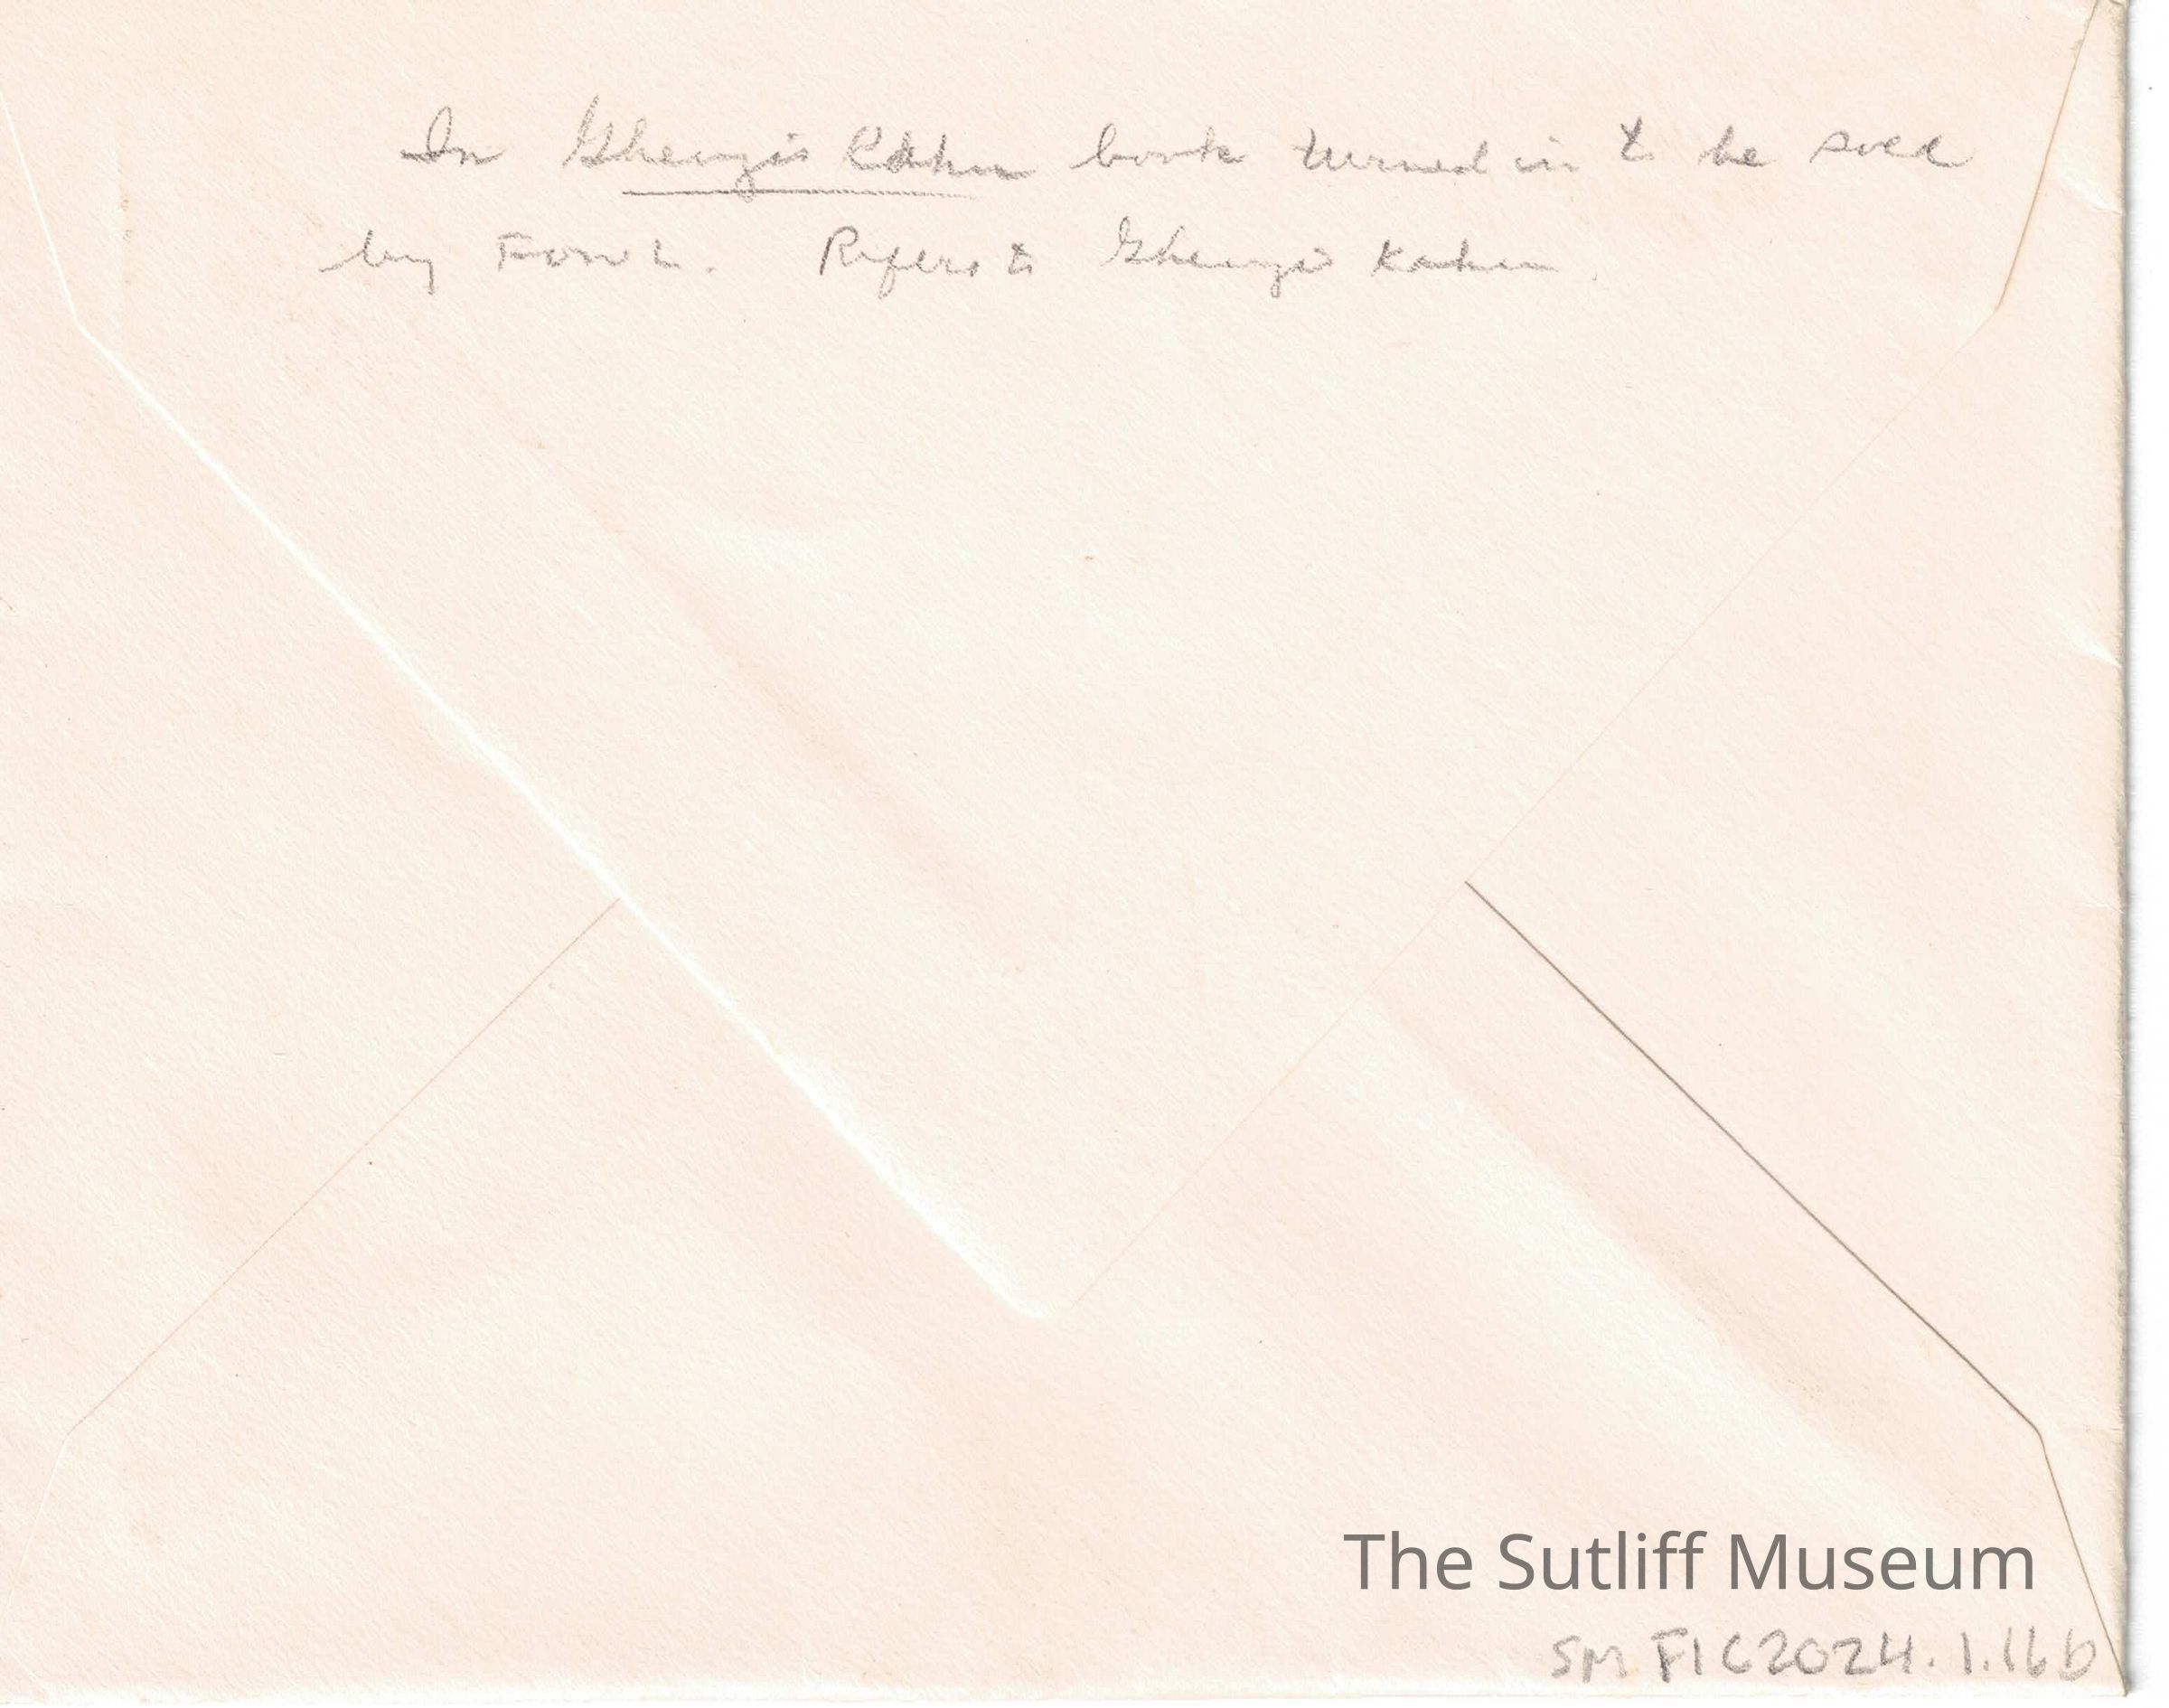 In Ghengis Kahn book turned in to be sold
by FOWL. Refers to Ghengis Kahn.
The Sutliff Museum
SM FIC2024.1.16b